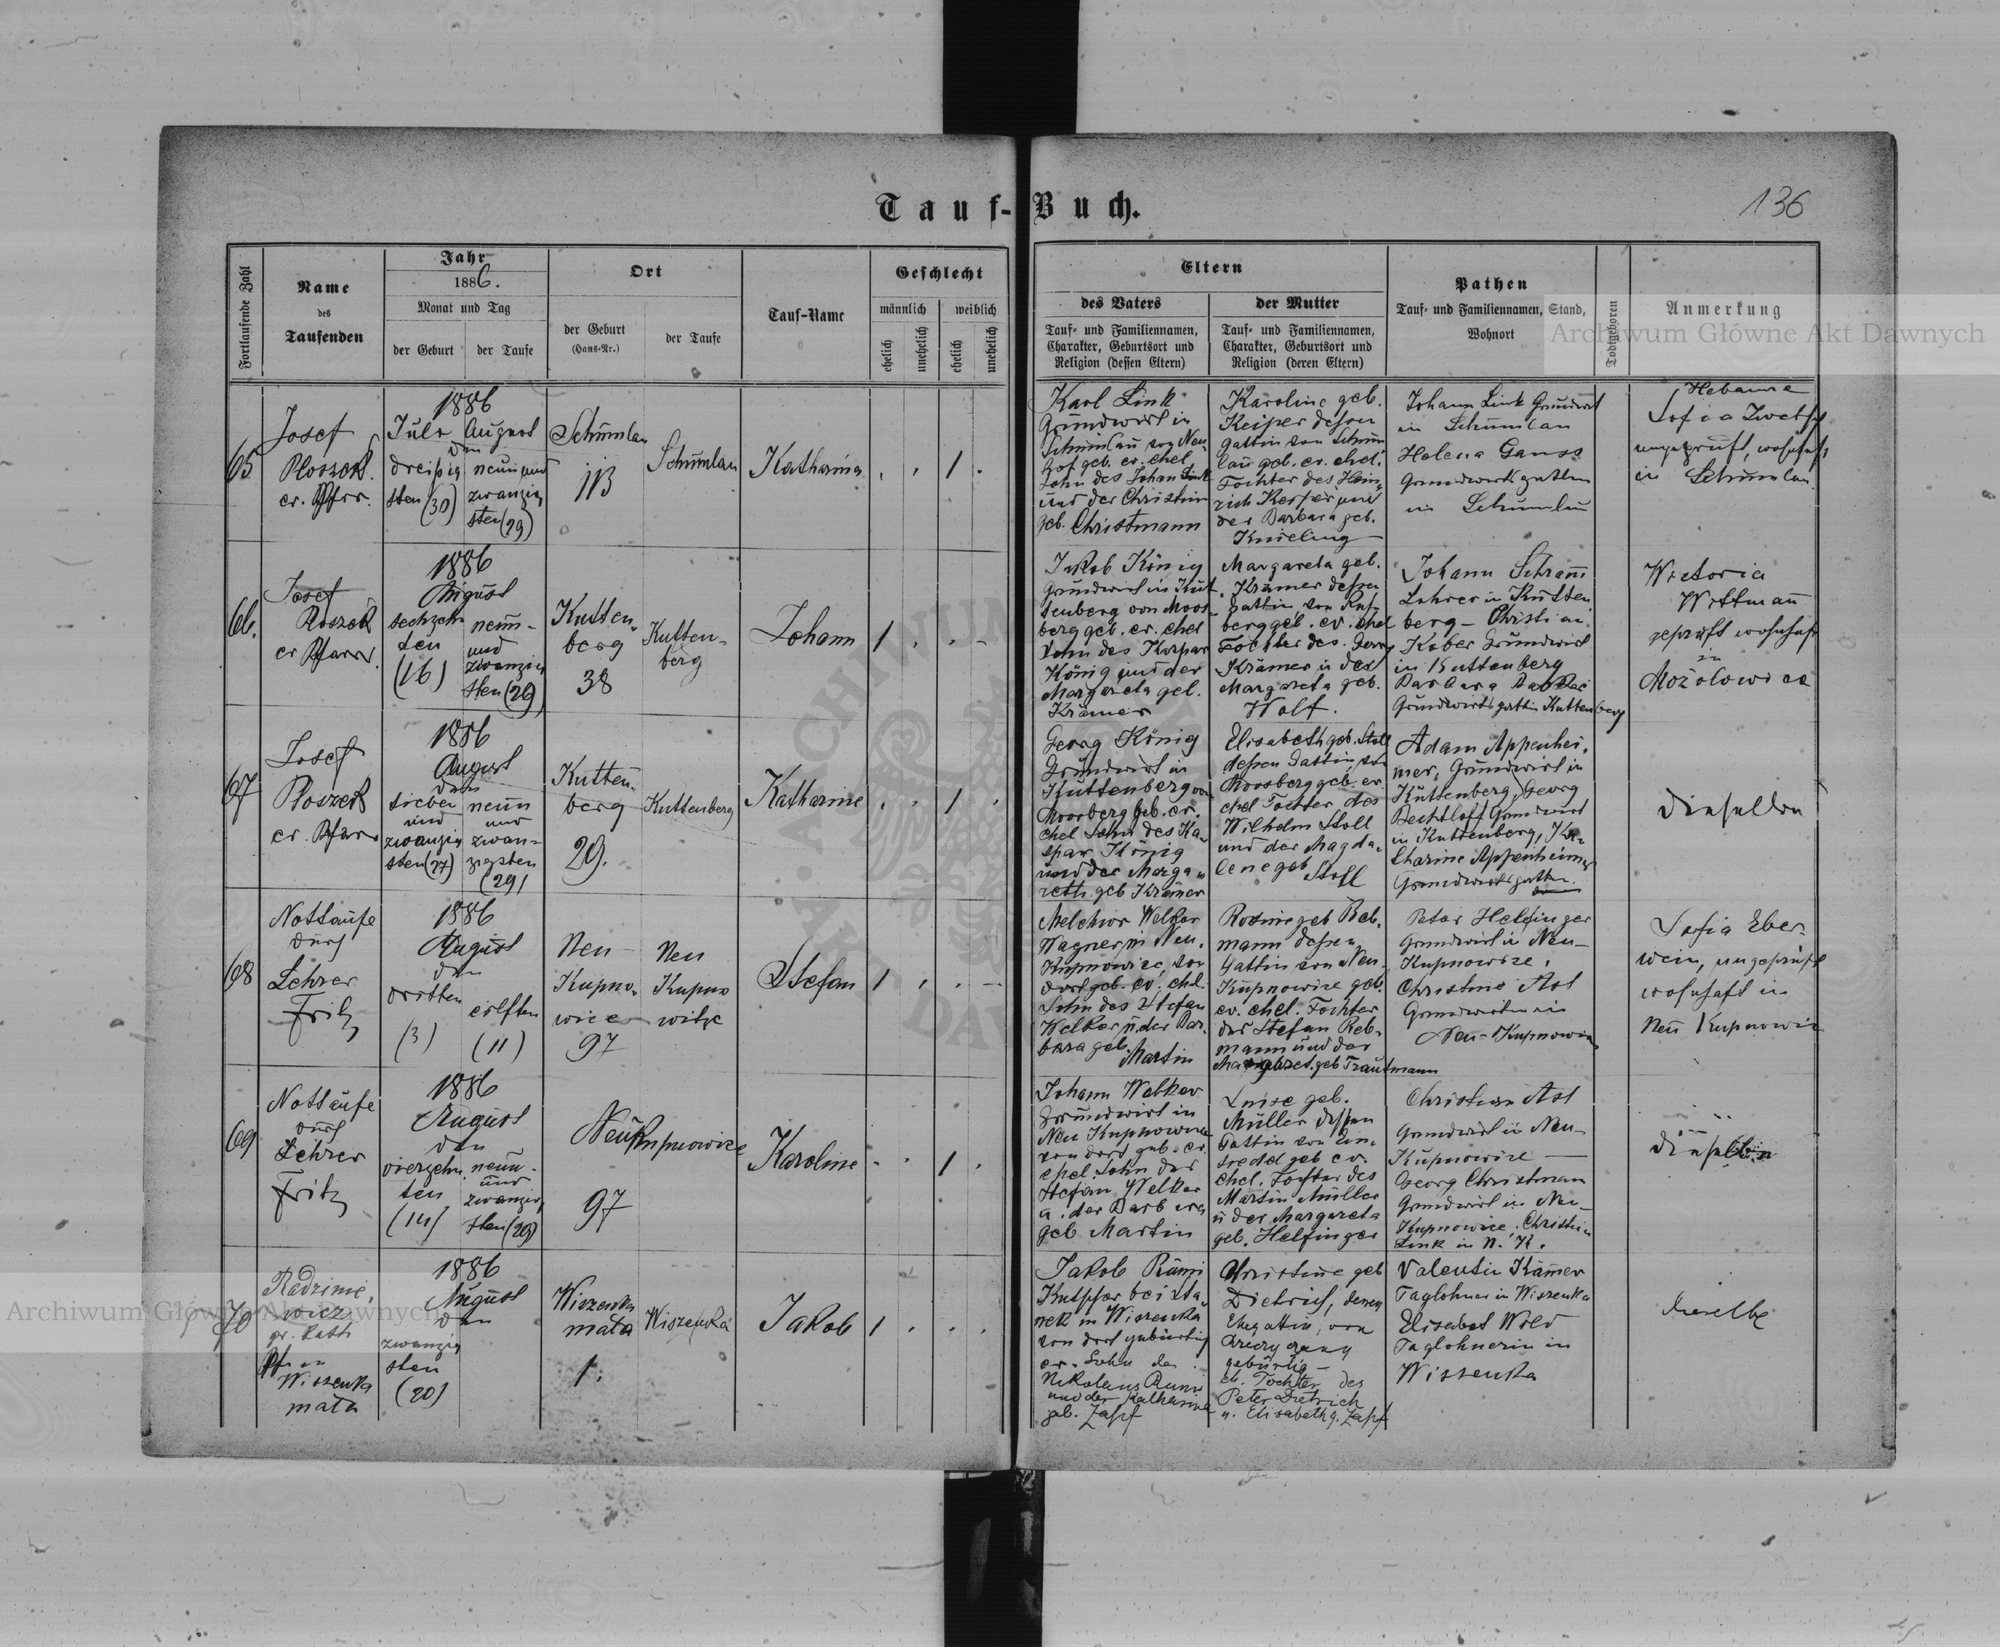 Tauf-Buch.
136
Fortlaufende Zahl
Name
des
Taufenden
Jahr
1886.
Monat und Tag
der Geburt
der Taufe
Ort
der Geburt
(Haus-Nr.)
der Taufe
Tauf-Name
Geschlecht
männlich
weiblich
ehelich
unehelich
ehelich
unehelich
Eltern
des Vaters
Tauf- und Familiennamen,
Charakter, Geburtsort und
Religion (dessen Eltern)
der Mutter
Tauf- und Familiennamen,
Charakter, Geburtsort und
Religion (deren Eltern)
Pathen
Tauf- und Familiennamen, Stand,
Wohnort
Todtgeboren
Anmerkung
Archiwum Główne Akt Dawnych
65
Josef
Ploszek
ev. Pfrr.
1886
Juli
dreißig
sten (30)
August
den
neun und
zwanzig
sten (29)
Schumlau
113
Schumlau
Katharina
1
Karl Link
Grundwirt in
Schumlau von Neu
hof geb. ev. ehel
Sohn des Johan Link
und der Christin
geb. Christmann
Karoline geb.
Keiper dessen
Gattin von Schum
lau geb. ev. ehel.
Tochter des Hein
rich Keiper und
der Barbara geb.
Knieling
Johann Link Grundwirt
in Schumlau
Helena Ganss
Grundwirtsgattin
in Schumlau
Hebamme
Sofia
ungeprüft, wohnhaft
in Schumlau
66.
Josef
Ploszek
ev Pfarr.
1886
August
sechzehn
ten
(16)
neun-
und
zwanzig
sten (29)
Kutten-
berg
38
Kutten-
berg
Johann
1
Jakob König
Grundwirt in Kut
tenberg von Moos
berg geb. ev. ehel
Sohn des Kaspar
König und der
Margareta geb.
Krämer
Margareta geb.
Krämer dessen
Gattin von
berg geb. ev. ehel
Tochter des Georg
Krämer u des
Margareta geb.
Wolf.
Johann Schram
Lehrer in Kutten
berg - Christian
Kober Grundwirt
in Kuttenberg
Barbara
Grundwirtsgattin Kuttenberg
Wictoria
Wittmann
geprüft wohnhaft
in
Mozolowice
67
Josef
Ploszek
ev. Pfarr
1886
August
den
sieben
und
zwanzig
sten (27)
neun
und
zwan=
zigsten
(29)
Kutten-
berg
29.
Kuttenberg
Katharine
1
Georg König
Grundwirt in
Kuttenberg von
Moosberg geb. ev.
ehel Sohn des Ka
spar König
und der Marga
reth geb Krämer
Elisabeth geb. Stoll
dessen Gattin von
Moosberg geb. ev.
ehel Tochter des
Wilhelm Stoll
und der Magda-
lene geb
Stoll
Adam Appenhei-
mer, Grundwirt in
Kuttenberg, Georg
Bechtloff Grundwirt
in Kuttenberg, Ka-
tharine Appenheimer
Grundwirtsgattin
dieselbe
68
Nottaufe
durch
Lehrer
Fritz
1886
August
den
dritten
(3)
eilften
(11)
Neu-
Kupno-
wice
97
Neu
Kupno
witze
Stefan
1
Melchior Welker
Wagner in Neu-
Kupnowice, von
dort geb. ev. ehl.
Sohn des Stefan
Welker u. der Bar-
bara geb.
Martin
Rosine geb Reb-
mann dessen
Gattin von Neu-
Kupnowice geb.
ev. ehel. Tochter
des Stefan Reb-
mann und der
Margaret. geb Trautmann
Peter Helfinger
Grundwirt in Neu-
Kupnowice.
Christine Ast
Grundwirtin in
Neu-Kupnowice
Sofia Eber-
wein, ungeprüft
wohnhaft in
Neu Kupnowice
69
Nottaufe
durch
Lehrer
Fritz
1886
August
den
vierzehn
ten
(14)
neun-
und
zwanzig
sten (29)
Neu Kupnowice
97
Karoline
1
Johann Welker
Grundwirt in
Neu Kupnowice
von dort geb. ev.
ehel. Sohn der
Stefan Welker
u. der Barbara
geb Martin
Luise geb.
Müller dessen
Gattin von Ein-
siedel geb ev.
ehel. Tochter des
Martin Müller
u der Margareta
geb. Helfinger
Christian Ast
Grundwirt in Neu-
Kupnowice
Georg Christman
Grundwirt in Neu-
Kupnowice. Christin
Link in N. K.
dieselbe
70
Radzimie-
wicz
gr. kath
Wiszenka
mała
1886
August
den
zwanzig
sten
(20)
Wiszenka
mała
1.
Wiszenka
Jakob
1
Jakob
in Wiszenka
von dort gebürtig
ev. Sohn des
Nikolaus
und der Katharina
geb. Zapf
Christine geb
Dietrich, dessen
Ehegattin, von
gebürtig -
ev. Tochter des
Peter Dietrich
u. Elisabeth g. Zapf
Valentin Krämer
Taglohner in Wiszenka
Elisabet
Taglohnerin in
Wiszenka
dieselbe
Archiwum Główne Akt Dawnych